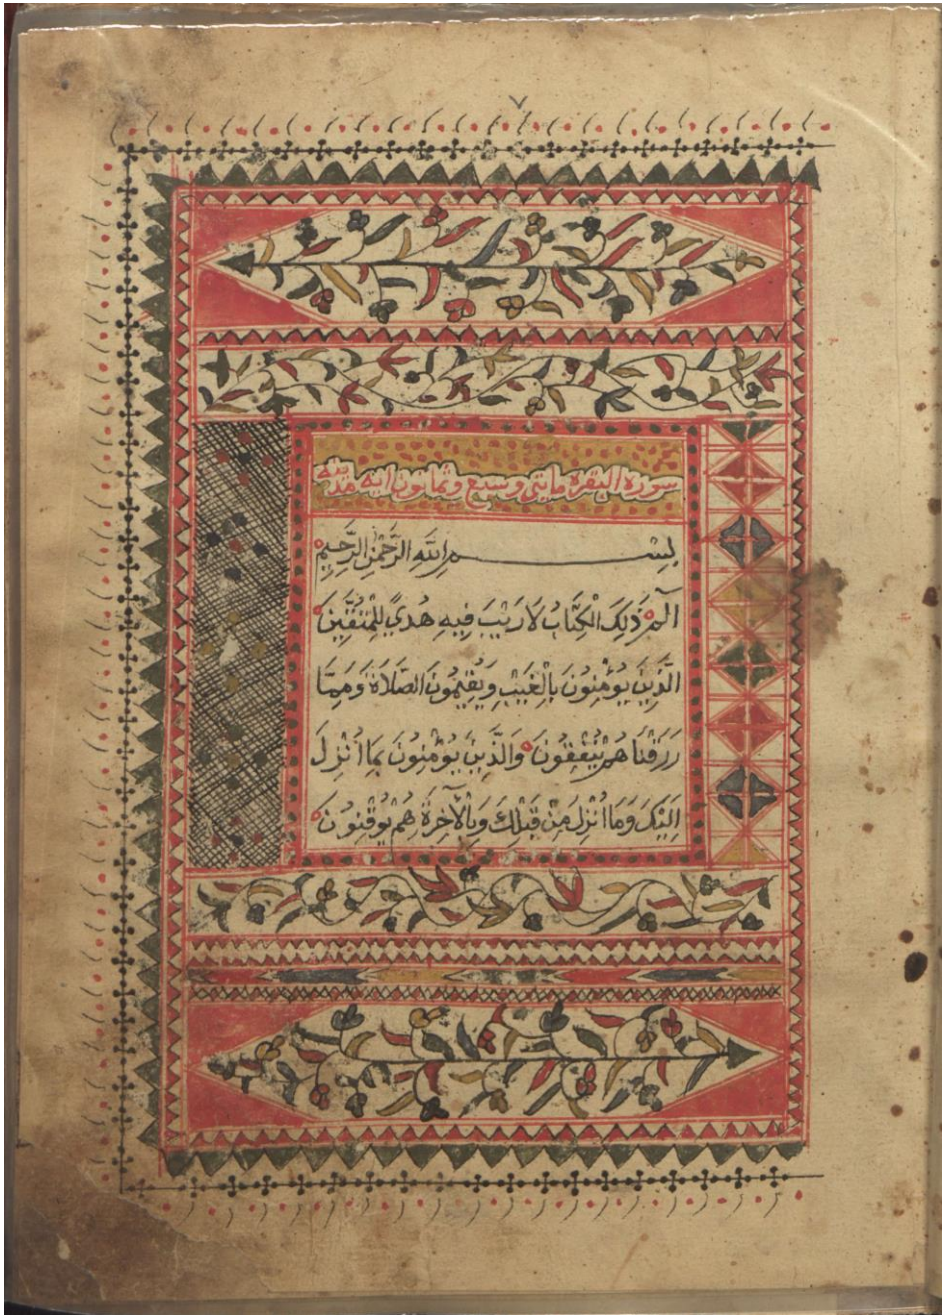 سورة البقرة مايتي وسبع وثمانون ايه مدنية
بِسْمِ اللَّهِ الرَّحْمٰنِ الرَّحِيمِ
الٓمٓ ذَلِكَ الْكِتَابُ لَا رَيْبَ فِيهِ هُدًي لِلْمُتَّقِينَ
الَّذِينَ يُؤْمِنُونَ بِالْغَيْبِ وَيُقِيمُونَ الصَّلَاةَ وَمِمَّا
رَزَقْنَاهُمْ يُنْفِقُونَ وَالَّذِينَ يُؤْمِنُونَ بِمَا اُنْزِلَ
اِلَيْكَ وَمَا اُنْزِلَ مِنْ قَبْلِكَ وَبِالْآخِرَةِ هُمْ يُوقِنُونَ